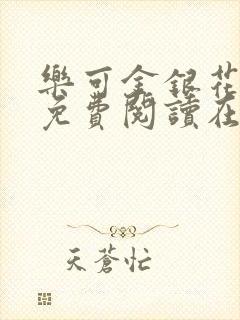 樂可金銀花
免費閱讀在
天蒼忙